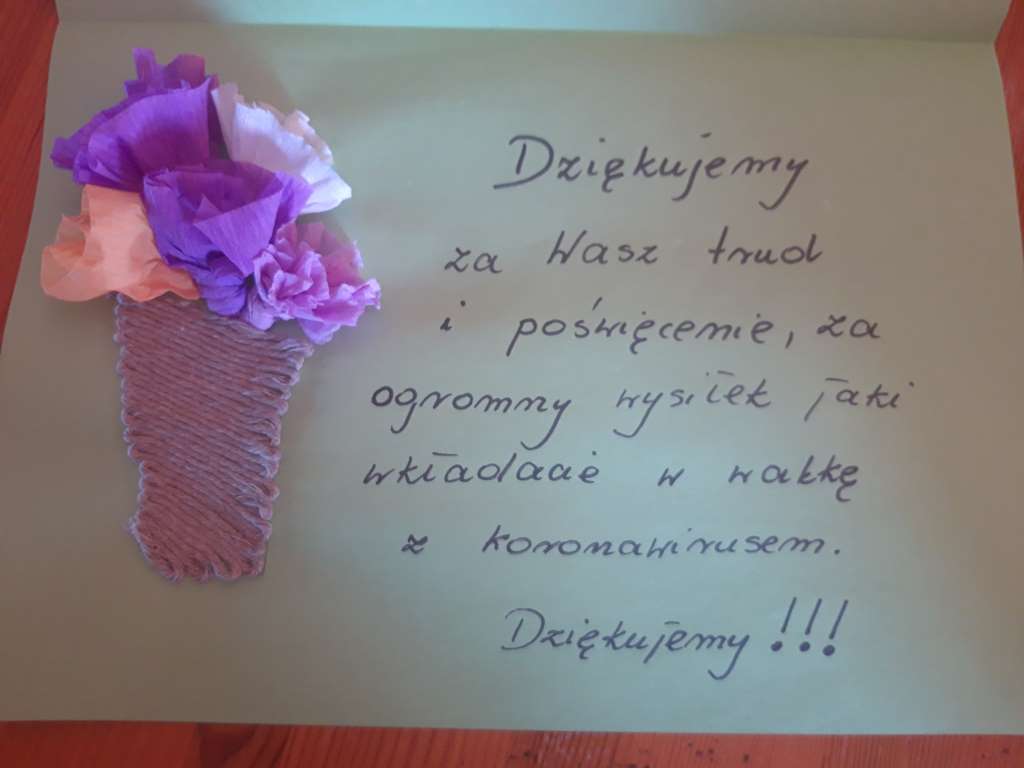 Dziękujemy
za Wasz trud
i poświęcenie, za
ogromny wysiłek jaki
wkładacie w walkę
z koronawirusem.
Dziękujemy !!!